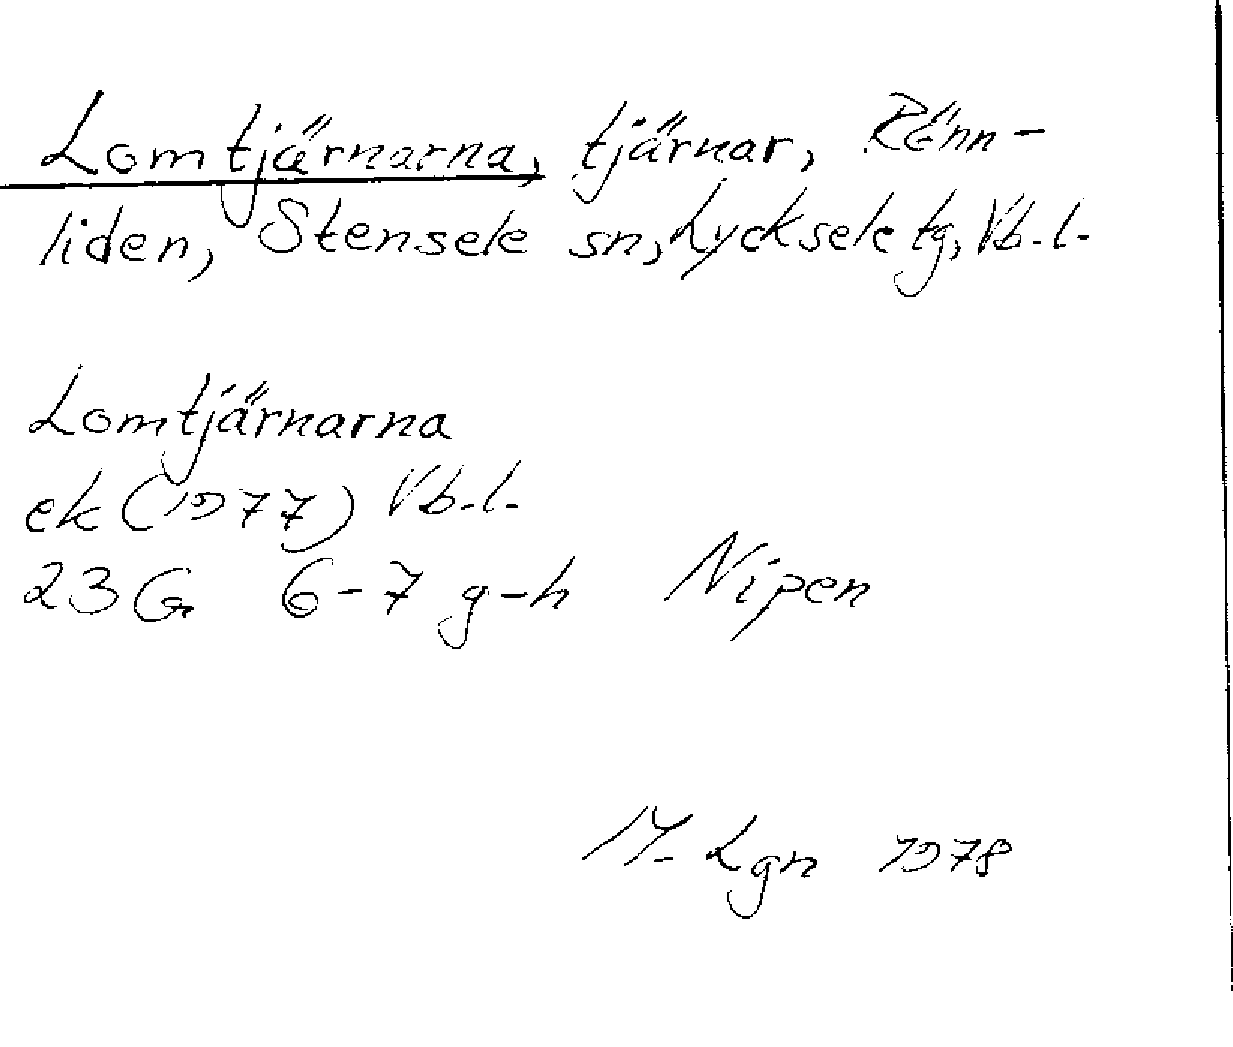 Lomtjärnarna, tjärnar, Rönn-
liden, Stensele sn, Lycksele tg, Vb.l.
Lomtjärnarna
ek (1977) Vb.l.
23G 6-7 g-h Nipen
M. Lgn 1978